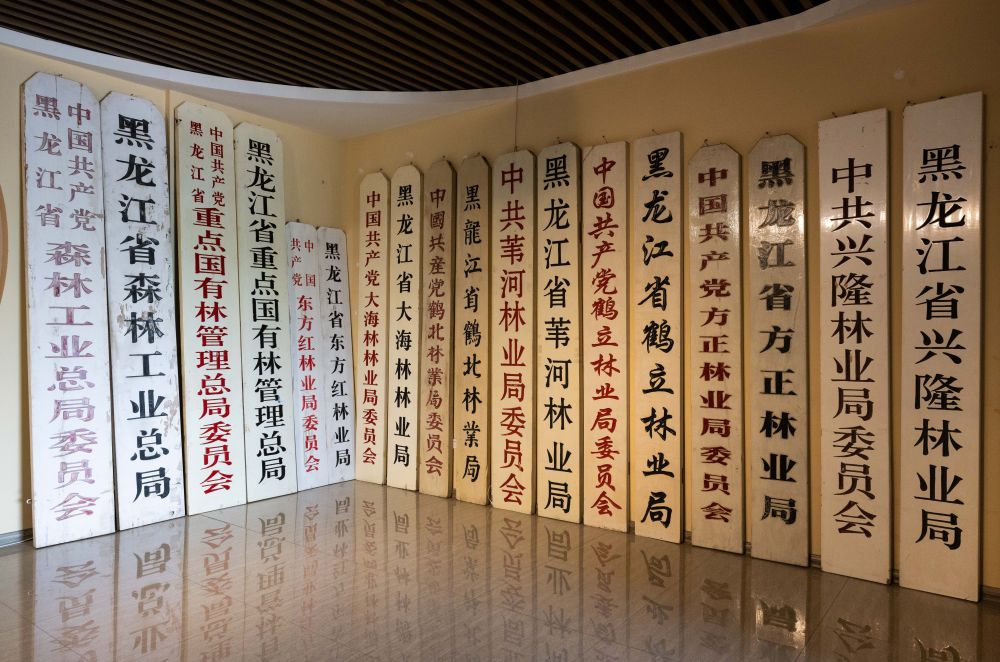 中国共产党
黑龙江省
森林工业总局委员会
黑龙江省森林工业总局
中国共产党
黑龙江省
重点国有林管理总局委员会
黑龙江省重点国有林管理总局
中国
共产党
东方红林业局委员会
黑龙江省东方红林业局
中国共产党大海林林业局委员会
黑龙江省大海林林业局
中國共産党鶴北林業局委員会
黑龍江省鶴北林業局
中共苇河林业局委员会
黑龙江省苇河林业局
中国共产党鹤立林业局委员会
黑龙江省鹤立林业局
中国共产党方正林业局委员会
黑龙江省方正林业局
中共兴隆林业局委员会
黑龙江省兴隆林业局